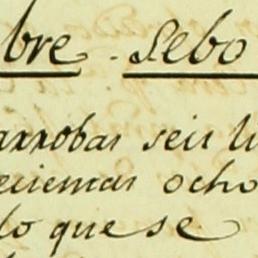 bre . Sebo
arrobas seis li
ecientas ocho
lo que se